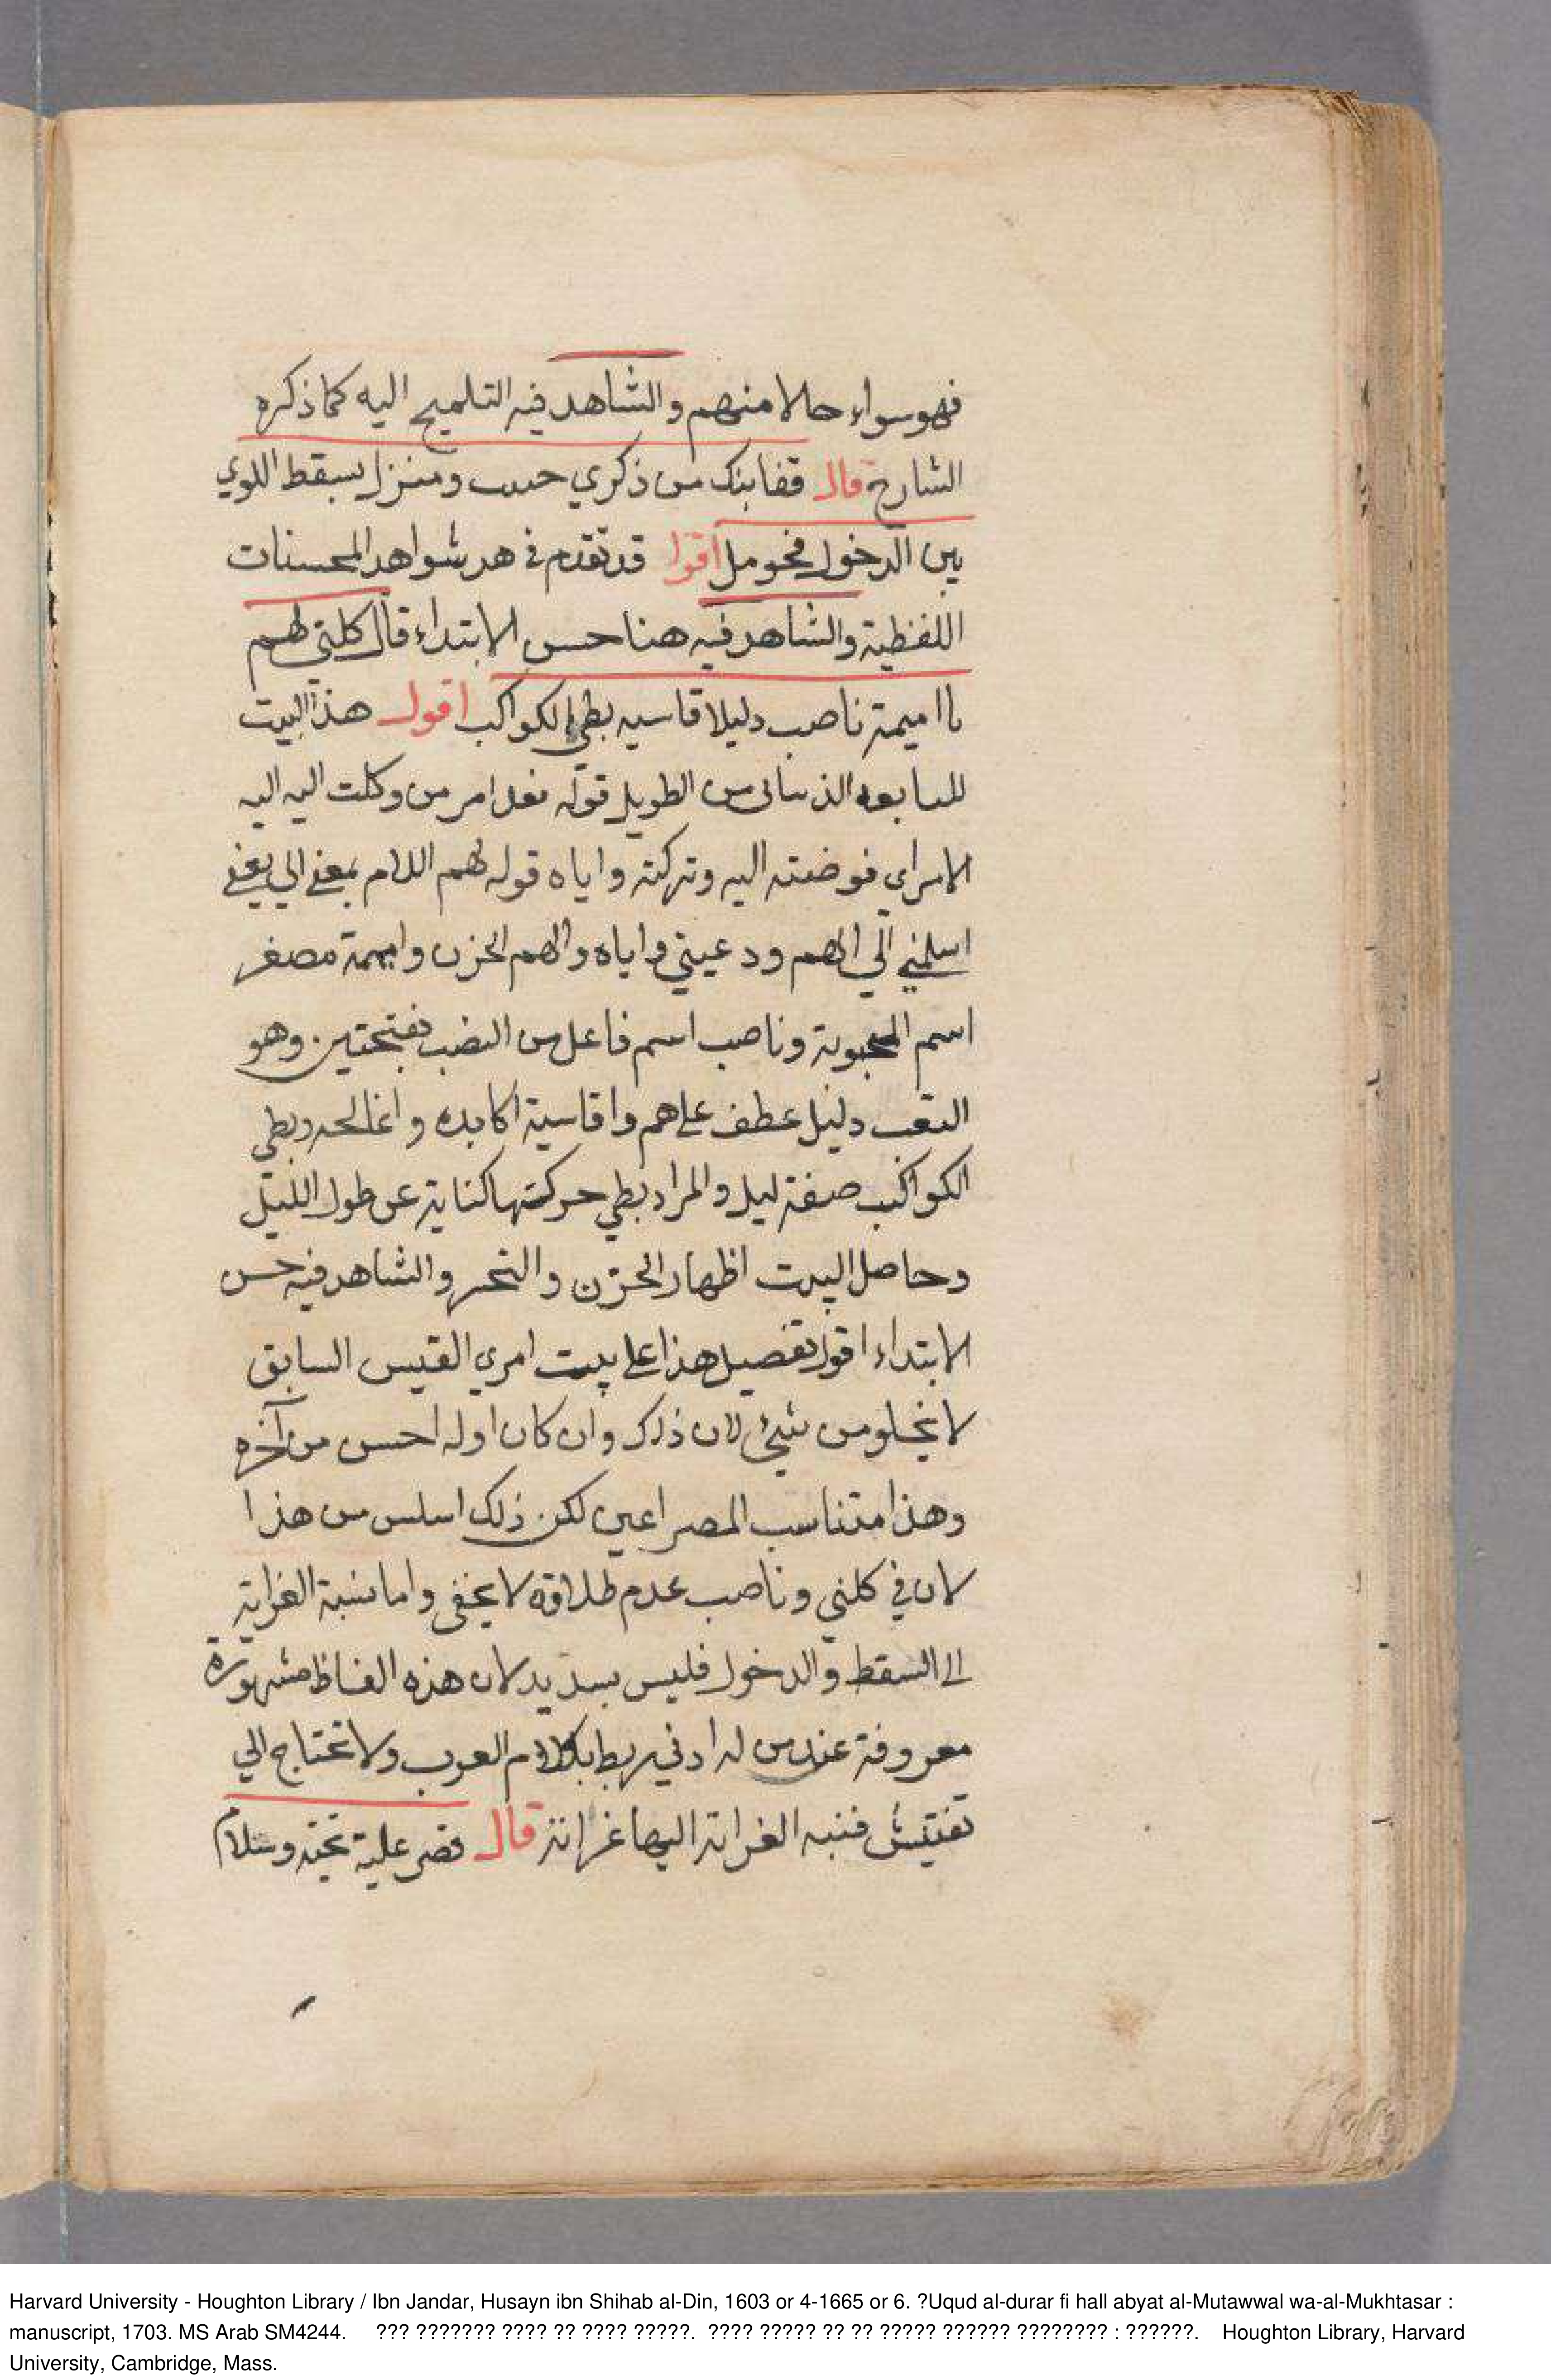 فهو سواء حالا منهم والشاهد فيه التلميح اليه كما ذكره
الشارح قال قفا نبك من ذكري حبيب ومنزل بسقط اللوي
بين الدخول فحومل اقول قد تقدم في شواهد المحسنات
اللفظية والشاهد فيه هنا حسن الابتداء قال كليني لهم
يا اميمة ناصب وليل اقاسيه بطي الكواكب اقول هذا البيت
للنابغه الذبياني من الطويل قوله امر من وكلت اليه
الامر اي فوضته اليه وتركته واياه قوله لهم اللام بمعني الي يعني
اسلمني الي الهم ودعيني واياه والهم الحزن واميمة مصغر
اسم المحبوبة وناصب اسم فاعل من النصب بفتحتين وهو
التعب وليل عطف علي هم واقاسية اكابده واعالجه وبطي
الكواكب صفة ليل والمراد بطي حركتها كناية عن طول الليل
وحاصل البيت اظهار الحزن والتحسر والشاهد فيه حسن
الابتداء اقول تفضيل هذا علي بيت امري القيس السابق
لا يخلو من شيئ لان ذلك وان كان اوله احسن من آخره
وهذا متناسب المصراعين لكن ذلك اسلس من هذا
لان في كليني وناصب عدم طلاقة لا يخفي واما نسبة الغرابة
الي السقط والدخول فليس بسديد لان هذه الفاظ مشهورة
معروفة عند من له ادني ربط بكلام العرب ولا تحتاج الي
تفتيش فنسبة الغرابة اليها غرابة قال قصر عليه تحية وسلام
Harvard University - Houghton Library / Ibn Jandar, Husayn ibn Shihab al-Din, 1603 or 4-1665 or 6. ?Uqud al-durar fi hall abyat al-Mutawwal wa-al-Mukhtasar :
manuscript, 1703. MS Arab SM4244. ??? ??????? ???? ?? ???? ?????. ???? ????? ?? ?? ????? ?????? ???????? : ??????. Houghton Library, Harvard
University, Cambridge, Mass.